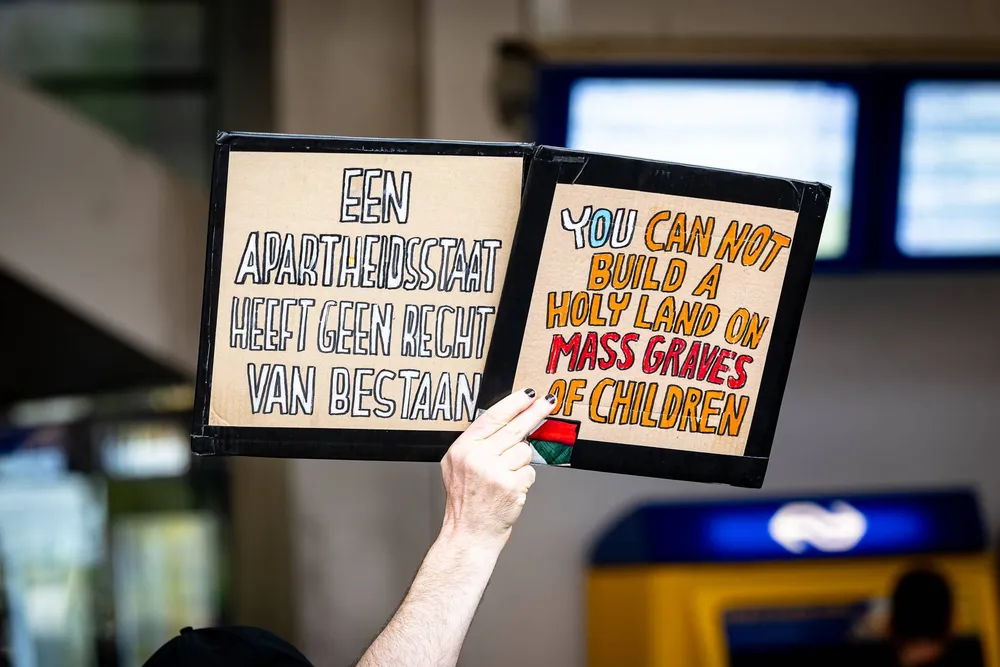 EEN
APARTHEIDSSTAAT
HEEFT GEEN RECHT
VAN BESTAAN
YOU CAN NOT
BUILD A
HOLY LAND ON
MASS GRAVES
OF CHILDREN